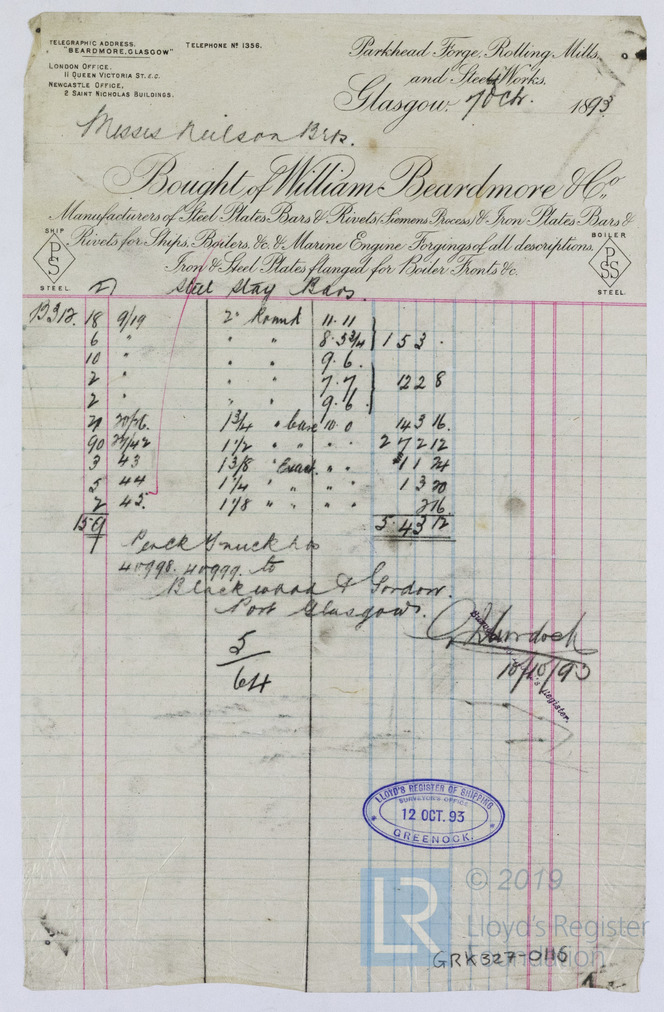 TELEGRAPHIC ADDRESS. TELEPHONE Nº 1356.
"BEARDMORE, GLASGOW"
LONDON OFFICE,
11 QUEEN VICTORIA ST. E.C.
NEWCASTLE OFFICE,
2 SAINT NICHOLAS BUILDINGS.
Parkhead Forge, Rolling Mills,
and Steel Works,
Glasgow, 7 Oct. 1893
Messrs Neilson Bros.
Bought of William Beardmore & Co.,
Manufacturers of Steel Plates Bars & Rivets (Siemens Process) & Iron Plates Bars &
Rivets for Ships, Boilers, &c. & Marine Engine Forgings of all descriptions,
Iron & Steel Plates flanged for Boiler Fronts &c.
SHIP
PS
STEEL
BOILER
PSS
STEEL
Steel Stay Bars.
13312. 18 9/19 2" Round 11.11
6 " " " 8.5 3/4 1 5 3 .
10 " " " 9.6.
2 " " " 7.7 12 2 8
2 " " " 9.6.
21 20/26. 1 3/4 " bare 10.0 14 3 16.
90 1 1/2 " " " " 2 7 2 12
3 43 1 3/8 " Exact. " " 1 1 24
5 44 1 1/4 " " " " 1 3 20
2 45. 1 1/8 " " " " 2 16
159 5. 4 3 12
Truck Nos
40998. 40999. to
Blackwood & Gordon.
Port Glasgow.
5
64
Murdoch
10/10/93
Register.
LLOYD'S REGISTER OF SHIPPING
SURVEYOR'S OFFICE
12 OCT. 93
GREENOCK.
© 2019
LR
Lloyd's Register
Foundation
GRK327-0116